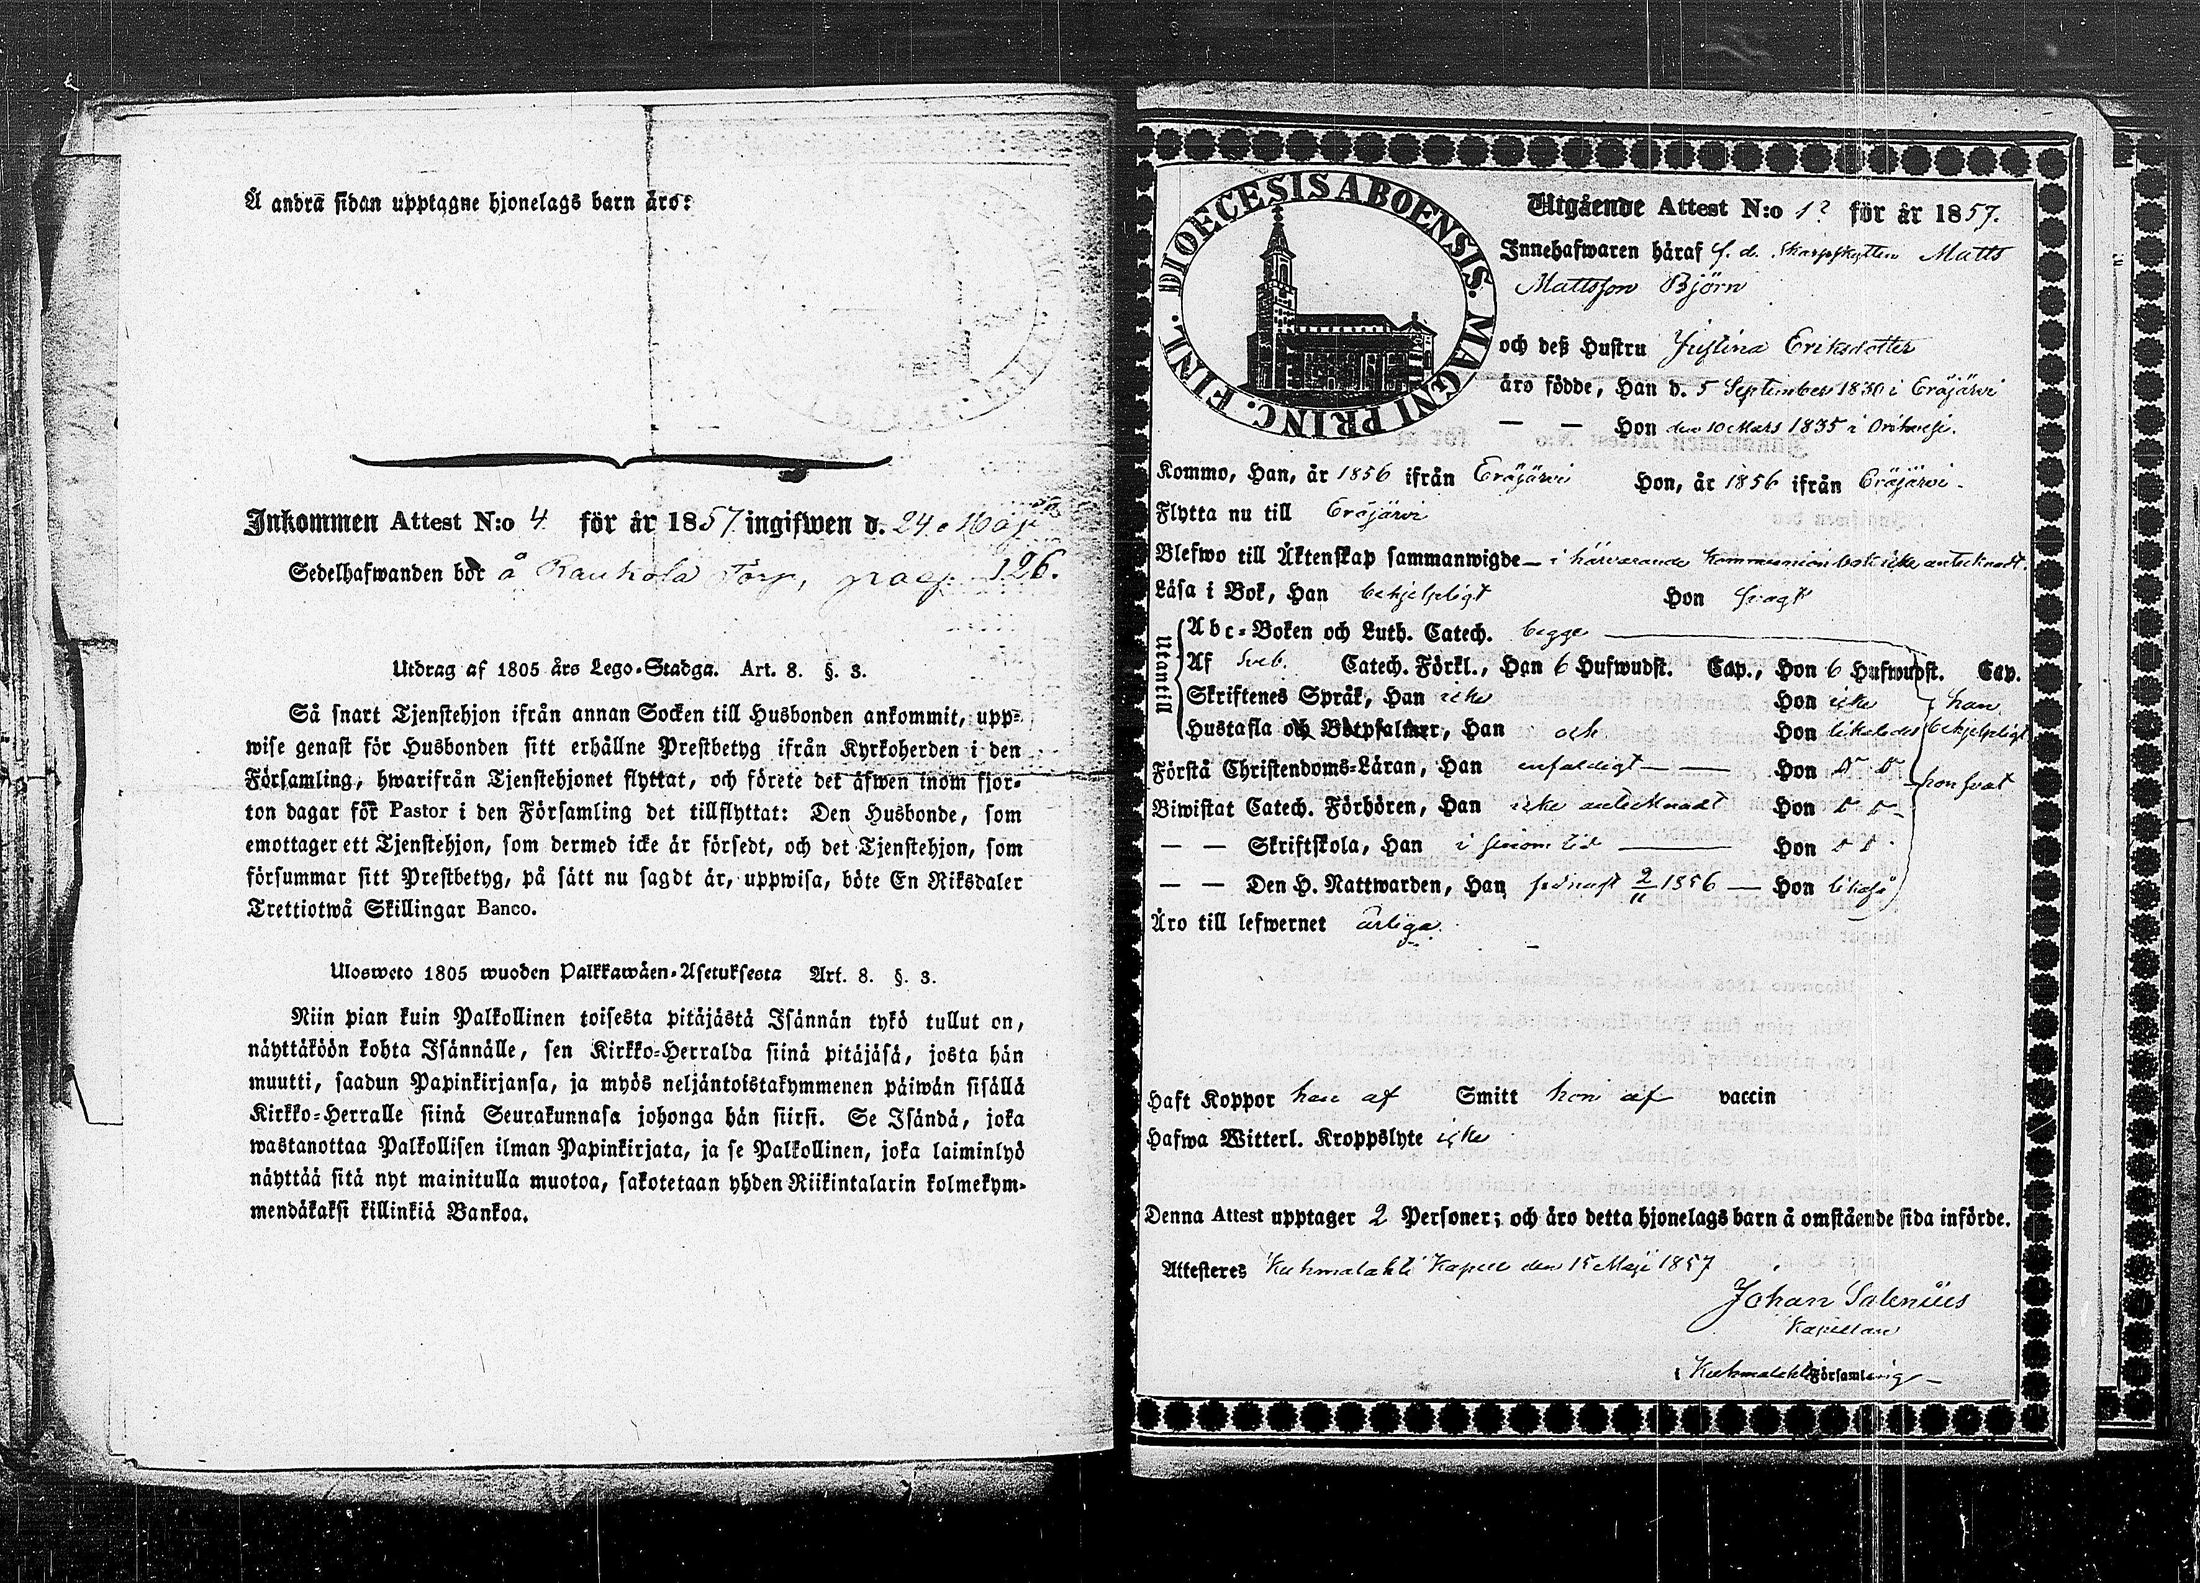 Å andra sidan upptagne hjonelags barn äro:
Inkommen Attest N:o 4 för år 1857 ingifwen d. 24 Maji
Sedelhafwanden bor å Raukola Torp, pag. 126.
Utdrag af 1805 års Lego-Stadga. Art. 8. §. 3.
Så snart Tjenstehjon ifrån annan Socken till Husbonden ankommit, upp-
wise genast för Husbonden sitt erhållne Prestbetyg ifrån Kyrkoherden i den
Församling, hwarifrån Tjenstehjonet flyttat, och förete det äfwen inom fjor-
ton dagar för Pastor i den Församling det tillflyttat: Den Husbonde, som
emottager ett Tjenstehjon, som dermed icke är försedt, och det Tjenstehjon, som
försummar sitt Prestbetyg, på sätt nu sagdt är, uppwisa, böte En Riksdaler
Trettiotwå Skillingar Banco.
Ulosweto 1805 wuoden Palkkawäen-Asetuksesta Art. 8. §. 3.
Niin pian kuin Palkollinen toisesta pitäjästä Isännän tykö tullut on,
näyttäköön kohta Isännälle, sen Kirkko-Herralda siinä pitäjäsä, josta hän
muutti, saadun Papinkirjansa, ja myös neljäntoistakymmenen päiwän sisällä
Kirkko-Herralle siinä Seurakunnasa johonga hän siirsi. Se Isändä, joka
wastanottaa Palkollisen ilman Papinkirjata, ja se Palkollinen, joka laiminlyö
näyttää sitä nyt mainitulla muotoa, sakotetaan yhden Riikintalarin kolmekym-
mendäkaksi killinkiä Bankoa.
DIOECESIS ABOENSIS. MAGNI PRINC. FINL.
Utgående Attest N:o 12 för år 1857.
Innehafwaren häraf f. d. Skarpskytten Matts
Mattsson Björn
och deß Hustru Justina Eriksdotter
äro födde, Han d. 5 September 1830 i Eräjärvi
— — Hon den 10 Mars 1835 i Orihvesi.
Kommo, Han, år 1856 ifrån Eräjärvi Hon, år 1856 ifrån Eräjärvi
Flytta nu till Eräjärvi
Blefwo till Äktenskap sammanwigde — i härvarande Kommunionbok icke antecknadt.
Läsa i Bok, Han behjelpligt Hon svagt
Utantill
Abc-Boken och Luth. Catech. begge
Af Sveb. Catech. Förkl., Han 6 Hufwudst. Cap., Hon 6 Hufwudst. Cap.
Skriftenes Språk, Han icke Hon icke han
Hustafla och Botpsalmer, Han och Hon likaledes behjelpligt
Förstå Christendoms-Läran, Han enfaldigt — — Hon D:o D:o hon svat
Biwistat Catech. Förhören, Han icke antecknadt Hon D:o D:o
— — Skriftskola, Han i sinom tid — Hon D:o D:o
— — Den H. Nattwarden, Han sednast 2/11 1856 — Hon likaså
Äro till lefwernet ärliga.
Haft Koppor han af Smitt hon af vaccin
Hafwa Witterl. Kroppslyte icke
Denna Attest upptager 2 Personer; och äro detta hjonelags barn å omstående sida införde.
Attesteres Kuhmalahti Kapell den 15 Maji 1857
Johan Salenius
Kapellan
i Kuhmalahti Församling